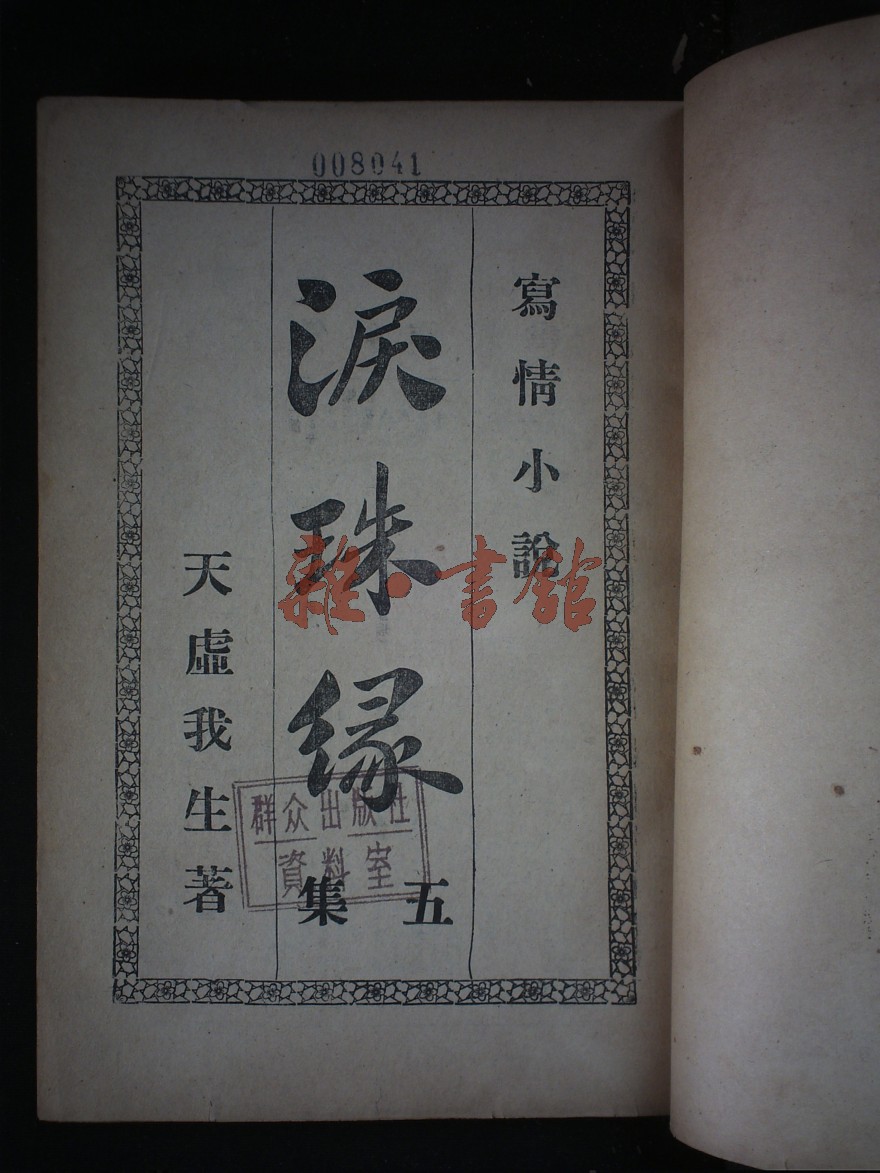 008041
寫情小說
淚珠緣
五集
天虛我生著
群众出版社
資料室
雜·書館